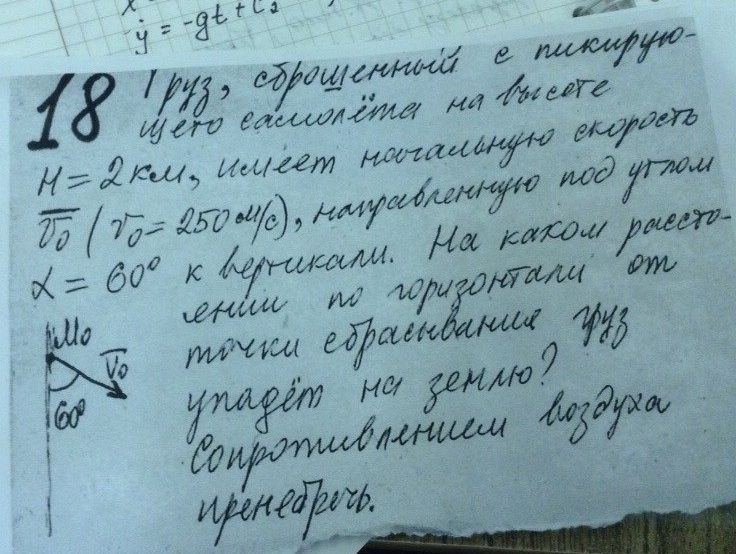 ẏ = -gt + C₂
18
Груз, сброшенный с пикирую-
щего самолёта на высоте
H = 2 км, имеет начальную скорость
V̅₀ (v₀ = 250 м/с), направленную под углом
α = 60° к вертикали. На каком рассто-
янии по горизонтали от
точки сбрасывания груз
упадёт на землю?
Сопротивлением воздуха
пренебречь.
M₀
V̅₀
60°